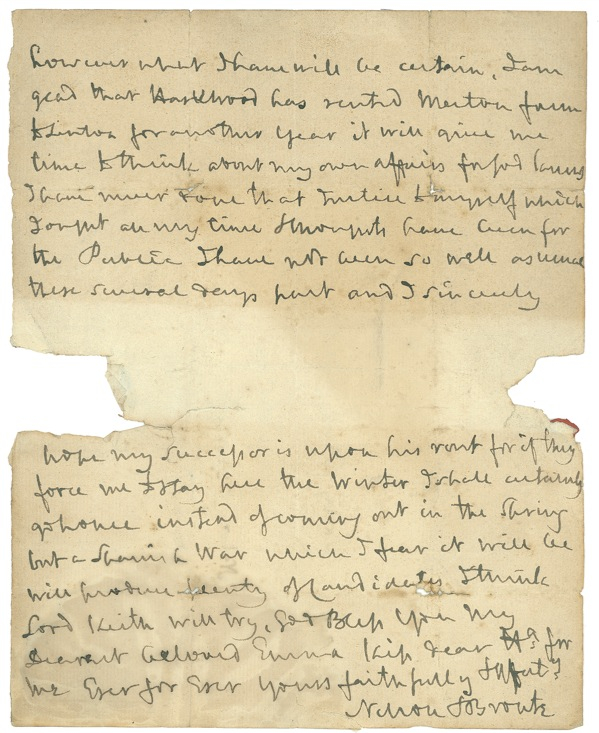 however what I have will be certain, I am
glad that Haslewood has rented Merton farm
to Linton for another Year it will give me
time to think about my own affairs for God knows
I have never done that Justice to myself which
I ought all my time & thoughts have been for
the Public I have not been so well as usual
these several days past and I sincerely
hope my successor is upon his rout for if they
force me to stay here the Winter I shall certainly
go home instead of coming out in the Spring
but a Spanish War which I fear it will be
will produce plenty of Candidates I think
Lord Keith will try, God Bless You My
Dearest beloved Emma Kiss dear Hª. for
me Ever for Ever Yours faithfully & Affectly
Nelson & Bronte